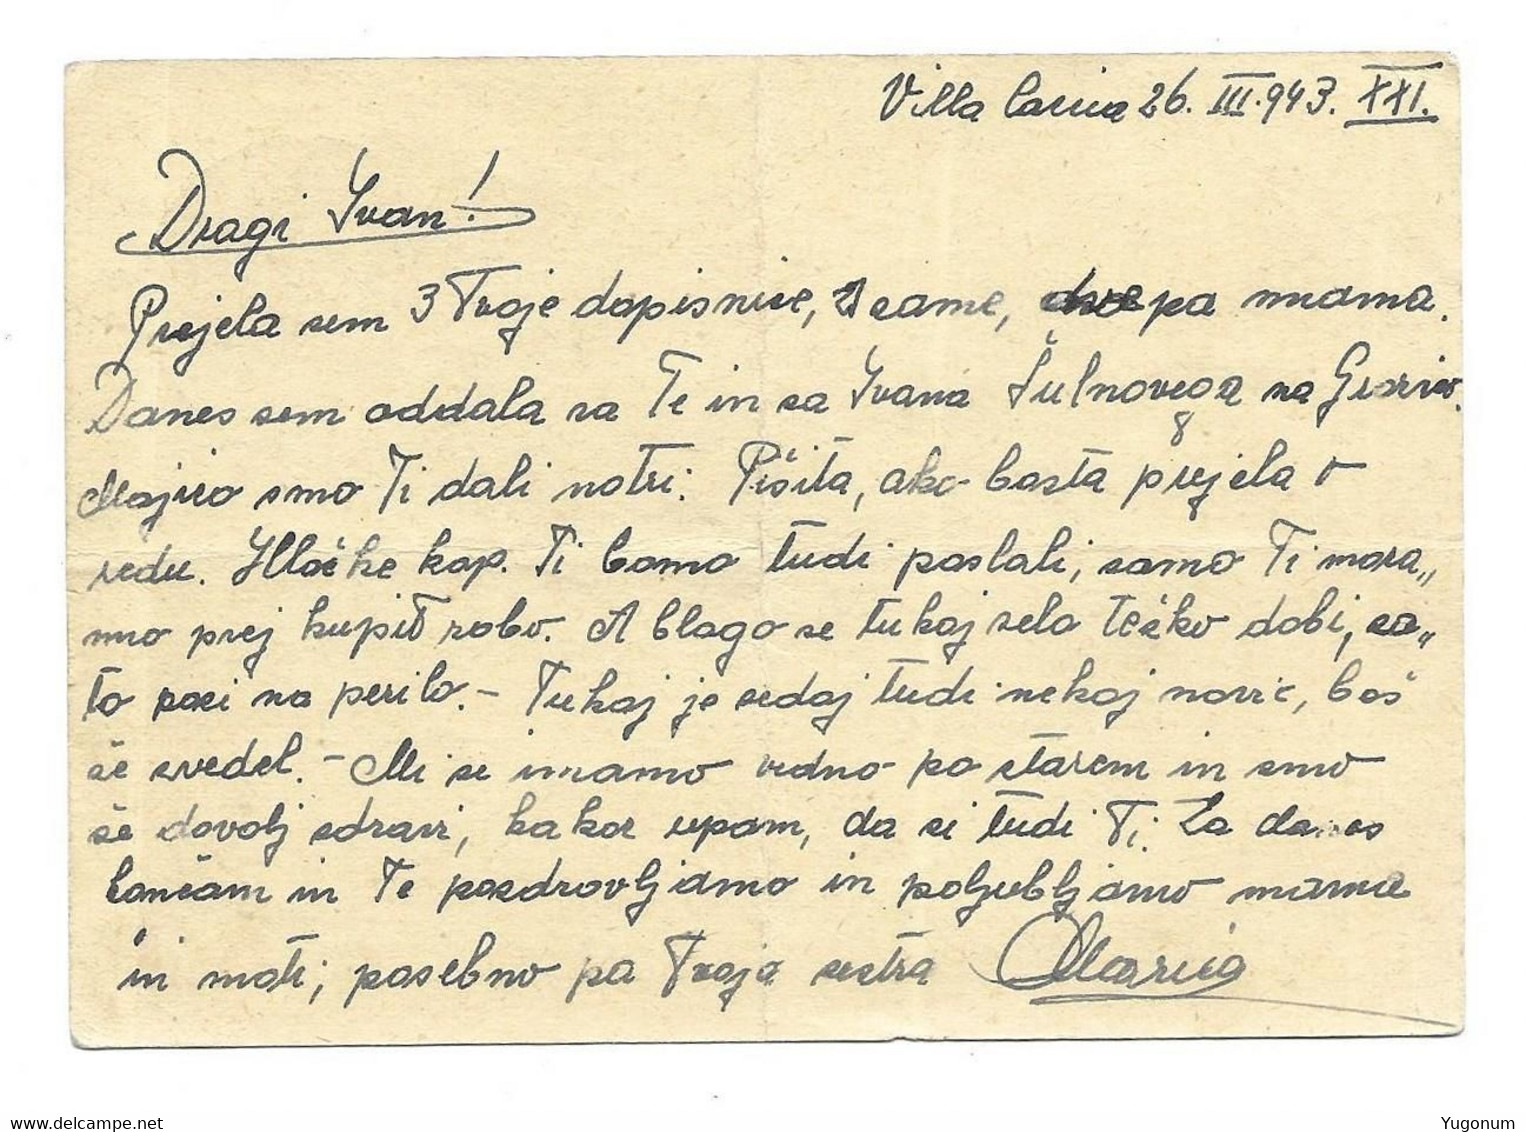 Villa Carica 26. III. 943. XXI.
Dragi Ivan!
Prejela sem 3 Tvoje dopisnice, same, pa mama.
Danes sem oddala za Te in za Ivana Šulnovega na
Majico smo Ti dali notri. Pišita, ako bosta prejela v
redu. Hlačke kop. Ti bomo tudi poslali, samo Ti mora„
mo prej kupit robo. A blago se tukaj zelo težko dobi, za„
to pazi na perilo. – Tukaj je sedaj tudi nekaj novic, boš
že zvedel. – Mi se imamo vedno po starem in smo
še dovolj zdravi, kakor upam, da si tudi Ti. Za danes
končam in Te pozdravljamo in poljubljamo mama
in moti; posebno pa Tvoja sestra Marija
delcampe.net
Yugonum